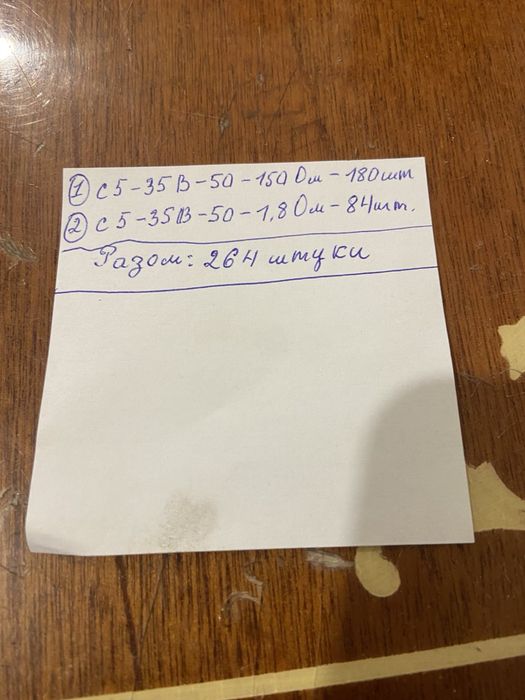 ① С5-35В-50-150 Ом-180шт
② С5-35В-50-1,8 Ом-84шт.
Разом: 264 штуки